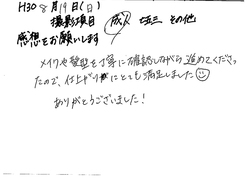 H30 8月19日(日)
撮影項目 成人 七五三 その他
感想をお願いします
メイクや髪型も丁寧に確認しながら進めてくださっ
たので、仕上がりにとても満足しました☺
ありがとうございました！